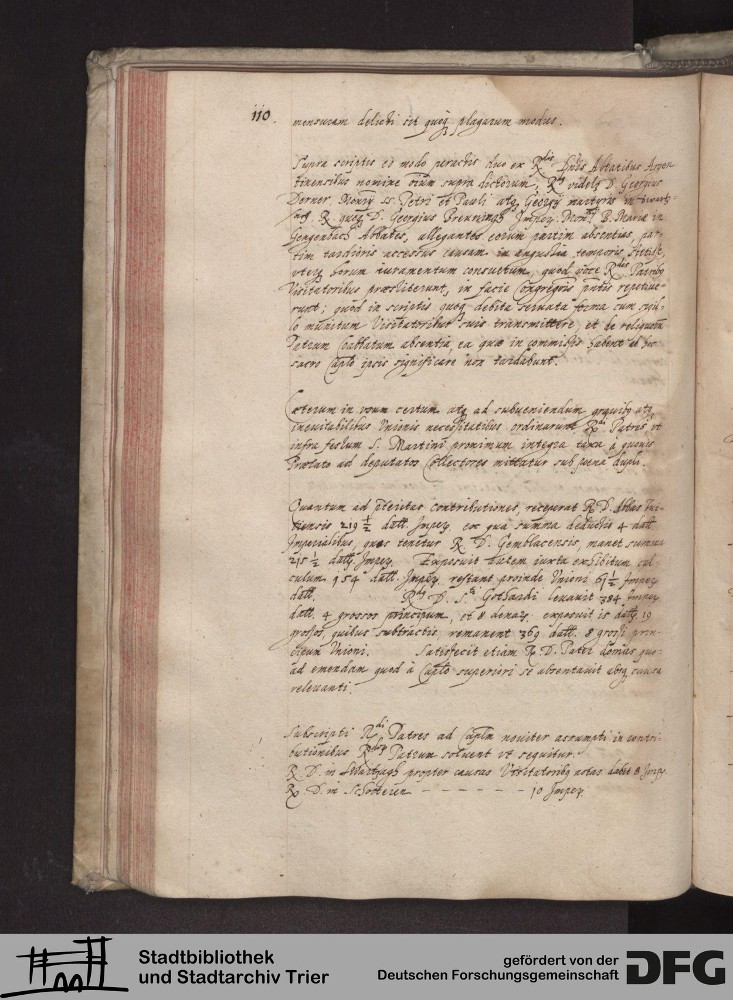 110.
mensuram delicti sit quoq plagarum modus.
Supra scriptis eo modo peractis duo ex Rdis Dnis Abbatibus Argen
tinensibus nomine oium supra dictorum, Rdi videlt D. Georgius
Derner, Monrÿ ss. Petri et Pauli atq Georgÿ martyris in
R. quoq D. Georgius Breuningh B. Mariæ in
Gengenbach Abbates, allegantes eorum partim absentias, par-
tim tardioris accessus causam in angustia temporis
uterq horum iuramentum consuetum, quod Rdis Patribq
Visitatoribus præstiterunt, in facie Congregõis pñtis repetiue-
runt, quod in scriptis quoq debita seruata forma cum sigil-
lo munitum Visitatoribus suis transmittere, et de reliquorũ
Patrum Oblatum absentia, ea quæ in commissis habent ab hoc
sacro Caplo ipsis significare non tardabunt.
Cæterum in usum certum atq ad subueniendum grauibq atq
ineuitabilibus Unionis necessitatibus ordinarunt Rdi Patres ut
infra festum S. Martini proximum integra taxa à quouis
Prælato ad deputatos Collectores mittatur sub poena dupli.
Quantum ad pteritas contributiones, receperat R. D. Abbas Tui-
tiensis 219 ½ dall. Impez, ex qua summa deductis 4 dall.
Imperialibus, quos tenetur R. D. Gemblacensis, manet summa
215 ½ dall. Impez. Exposuit autem iuxta exhibitum cal-
culum 154 dall. Impez, restant proinde Unioni 61 ½ Impez
dall. Rdus D. Sti Gothardi leuauit 384 Impez
dall. 4 grossos principum, et 8 denar. exposuit is dall. 19
grossos, quibus subtractis, remanent 369 dall. 8 grossi prin-
cipum Unioni. Satisfecit etiam R. D. Patri quo-
ad emendam quod à Caplo superiori se absentauit absq causa
releuanti.
Subscripti Rdi Patres ad Caplm nouiter assumpti in contri-
butionibus Rdorum Patrum soluent ut sequitur.
R. D. in propter causas Visitatoribq notas dabit 8 Impez.
R. D. in Schotteren - - - - - - 10 Impez.
Stadtbibliothek
und Stadtarchiv Trier
gefördert von der
Deutschen Forschungsgemeinschaft
DFG